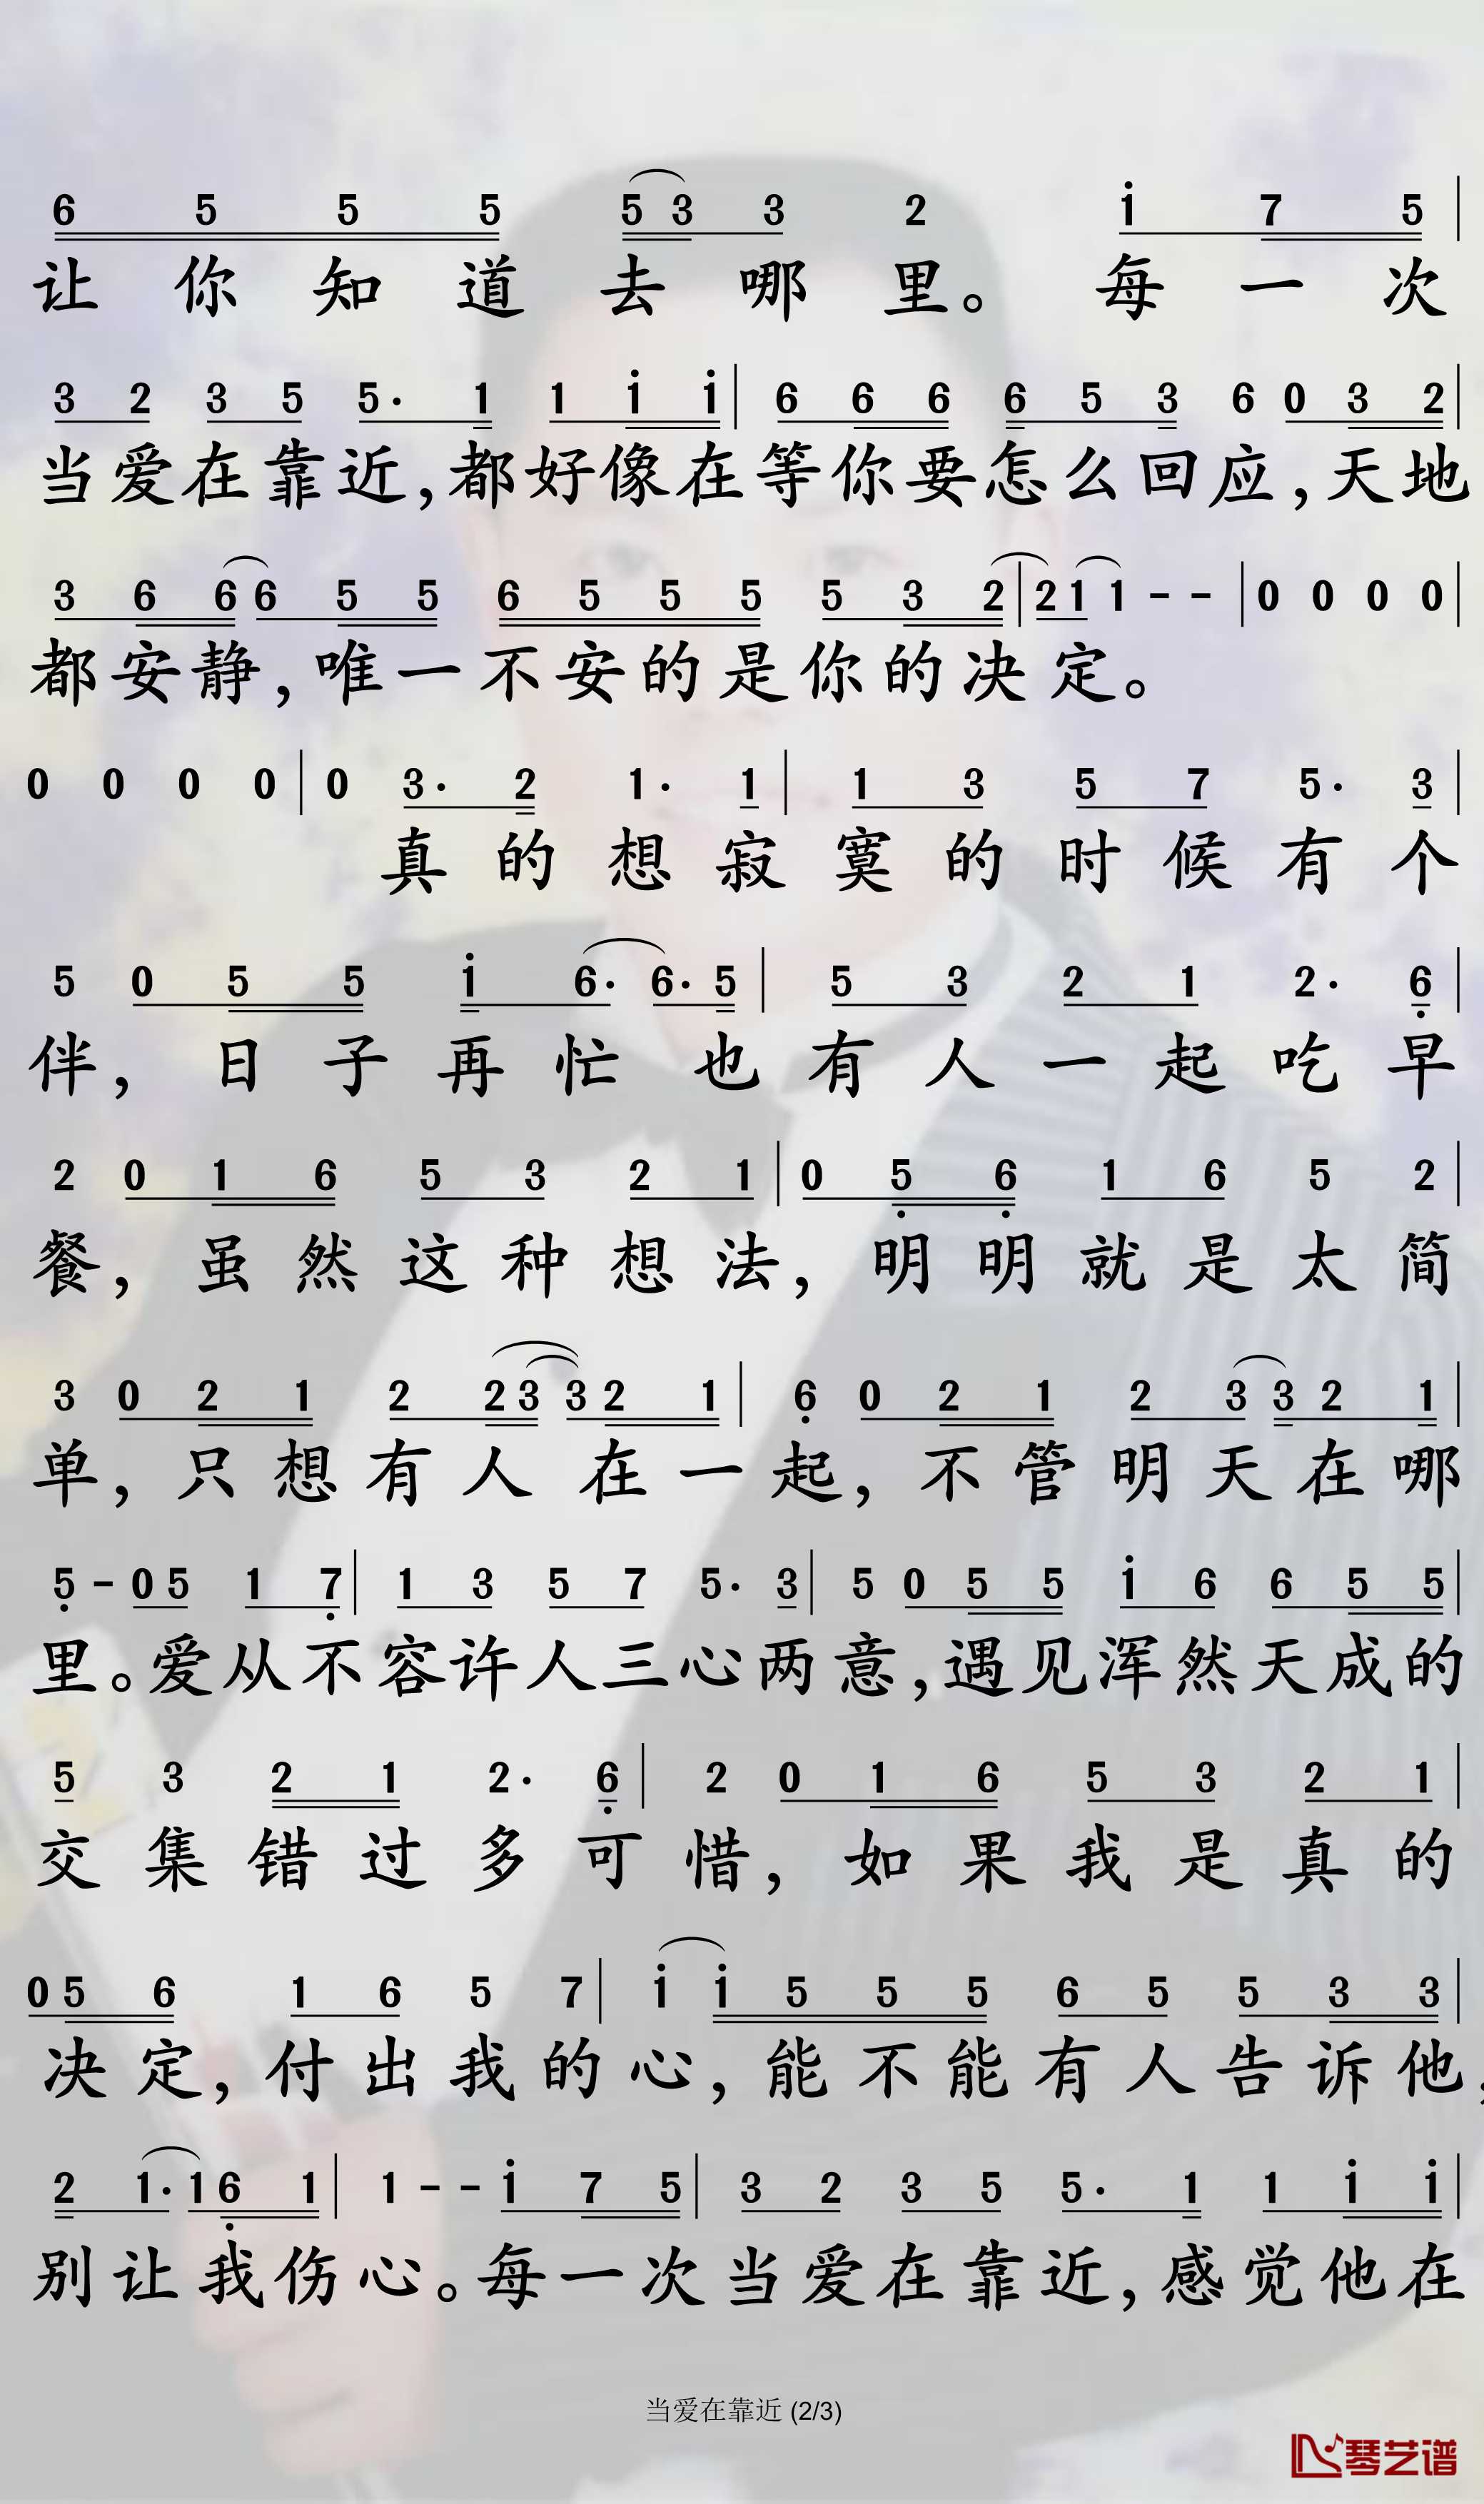 6 5 5 5 5 3 3 2 i 7 5 |
让你知道去哪里。每一次
3 2 3 5 5· 1 1 i i | 6 6 6 6 5 3 6 0 3 2 |
当爱在靠近,都好像在等你要怎么回应,天地
3 6 6 6 5 5 6 5 5 5 5 3 2 | 2 1 1 - - | 0 0 0 0 |
都安静,唯一不安的是你的决定。
0 0 0 0 | 0 3· 2 1· 1 | 1 3 5 7 5· 3 |
真的想寂寞的时候有个
5 0 5 5 i 6· 6· 5 | 5 3 2 1 2· 6̣ |
伴,日子再忙也有人一起吃早
2 0 1 6 5 3 2 1 | 0 5̣ 6̣ 1 6 5 2 |
餐,虽然这种想法,明明就是太简
3 0 2 1 2 2 3 3 2 1 | 6̣ 0 2 1 2 3 3 2 1 |
单,只想有人在一起,不管明天在哪
5̣ - 0 5 1 7̣ | 1 3 5 7 5· 3 | 5 0 5 5 i 6 6 5 5 |
里。爱从不容许人三心两意,遇见浑然天成的
5 3 2 1 2· 6̣ | 2 0 1 6 5 3 2 1 |
交集错过多可惜,如果我是真的
0 5 6 1 6 5 7 | i i 5 5 5 6 5 5 3 3 |
决定,付出我的心,能不能有人告诉他,
2 1· 1 6̣ 1 | 1 - - i 7 5 | 3 2 3 5 5· 1 1 i i |
别让我伤心。每一次当爱在靠近,感觉他在
当爱在靠近 (2/3)
琴艺谱